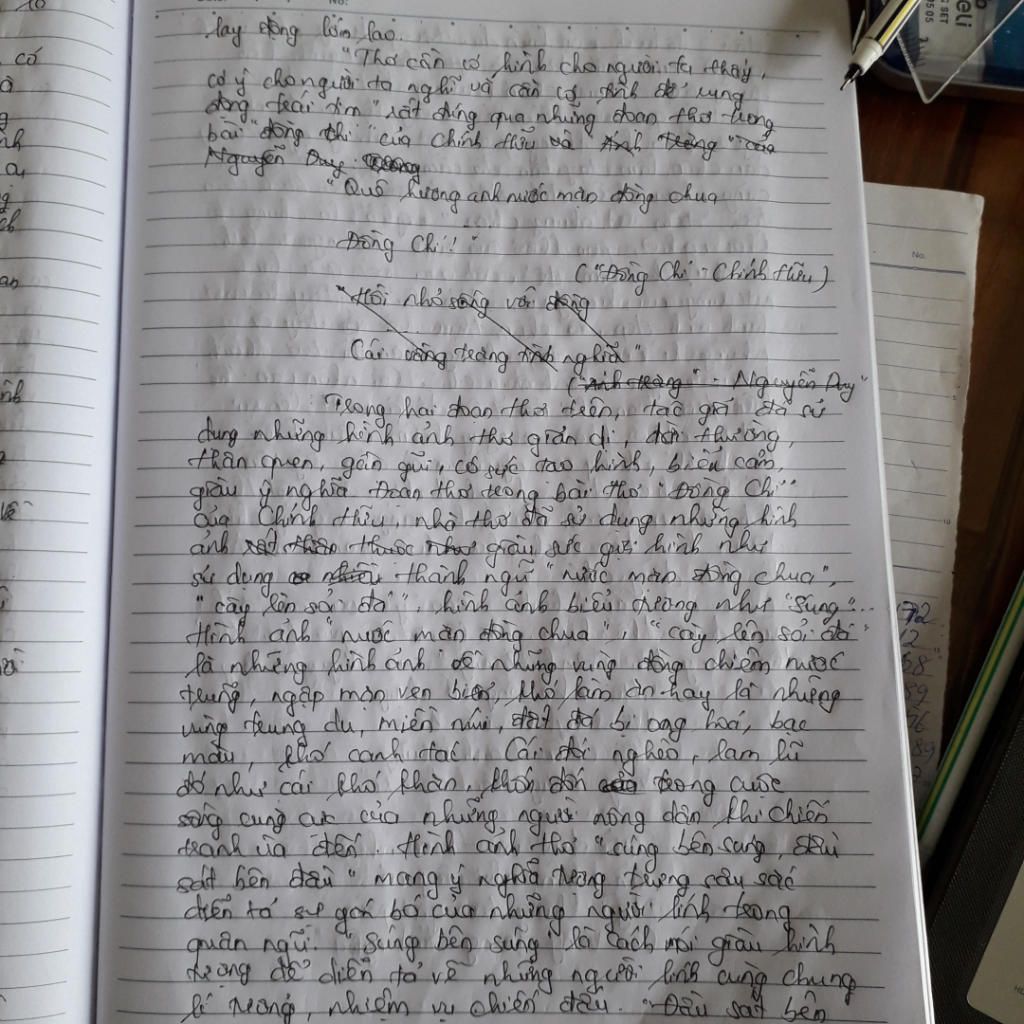 No:
lay động lớn lao.
"Thơ cần có hình cho người ta thấy,
có ý cho người ta nghĩ và cần có tình để rung
động trái tim" rất đúng qua những đoạn thơ trong
bài "đồng chí" của Chính Hữu và Ánh trăng" của
Nguyễn Duy.
"Quê hương anh nước mặn đồng chua
Đồng Chí!"
("Đồng Chí - Chính Hữu)
"Hồi nhỏ sống với đồng
Cái vầng trăng tình nghĩa"
("Ánh trăng" - Nguyễn Duy"
Trong hai đoạn thơ trên, tác giả đã sử
dụng những hình ảnh thơ giản dị, đời thường,
thân quen, gần gũi, có sức tạo hình, biểu cảm,
giàu ý nghĩa Đoạn thơ trong bài thơ "Đồng Chí"
của Chính Hữu, nhà thơ đã sử dụng những hình
ảnh giàu sức gợi hình như
sử dụng thành ngữ "nước mặn đồng chua",
"cày lên sỏi đá", hình ảnh biểu tượng như "Súng"...
Hình ảnh "nước mặn đồng chua", "cày lên sỏi đá"
là những hình ảnh về những vùng đồng chiêm nước
trũng, ngập mặn ven biển, khó làm ăn hay là những
vùng trung du, miền núi, đất đá bị ong hoá, bạc
màu, khó canh tác. Cái đói nghèo, lam lũ
đó như cái khó khăn, khốn đốn trong cuộc
sống cung cực của những người nông dân khi chiến
tranh ùa đến. Hình ảnh thơ "súng bên súng, đầu
sát bên đầu" mang ý nghĩa tượng trưng sâu sắc
diễn tả sự gắn bó của những người lính trong
quân ngũ. "Súng bên súng" là cách nói giàu hình
tượng để diễn tả về những người lính cùng chung
lí tưởng, nhiệm vụ chiến đấu. "Đầu sát bên